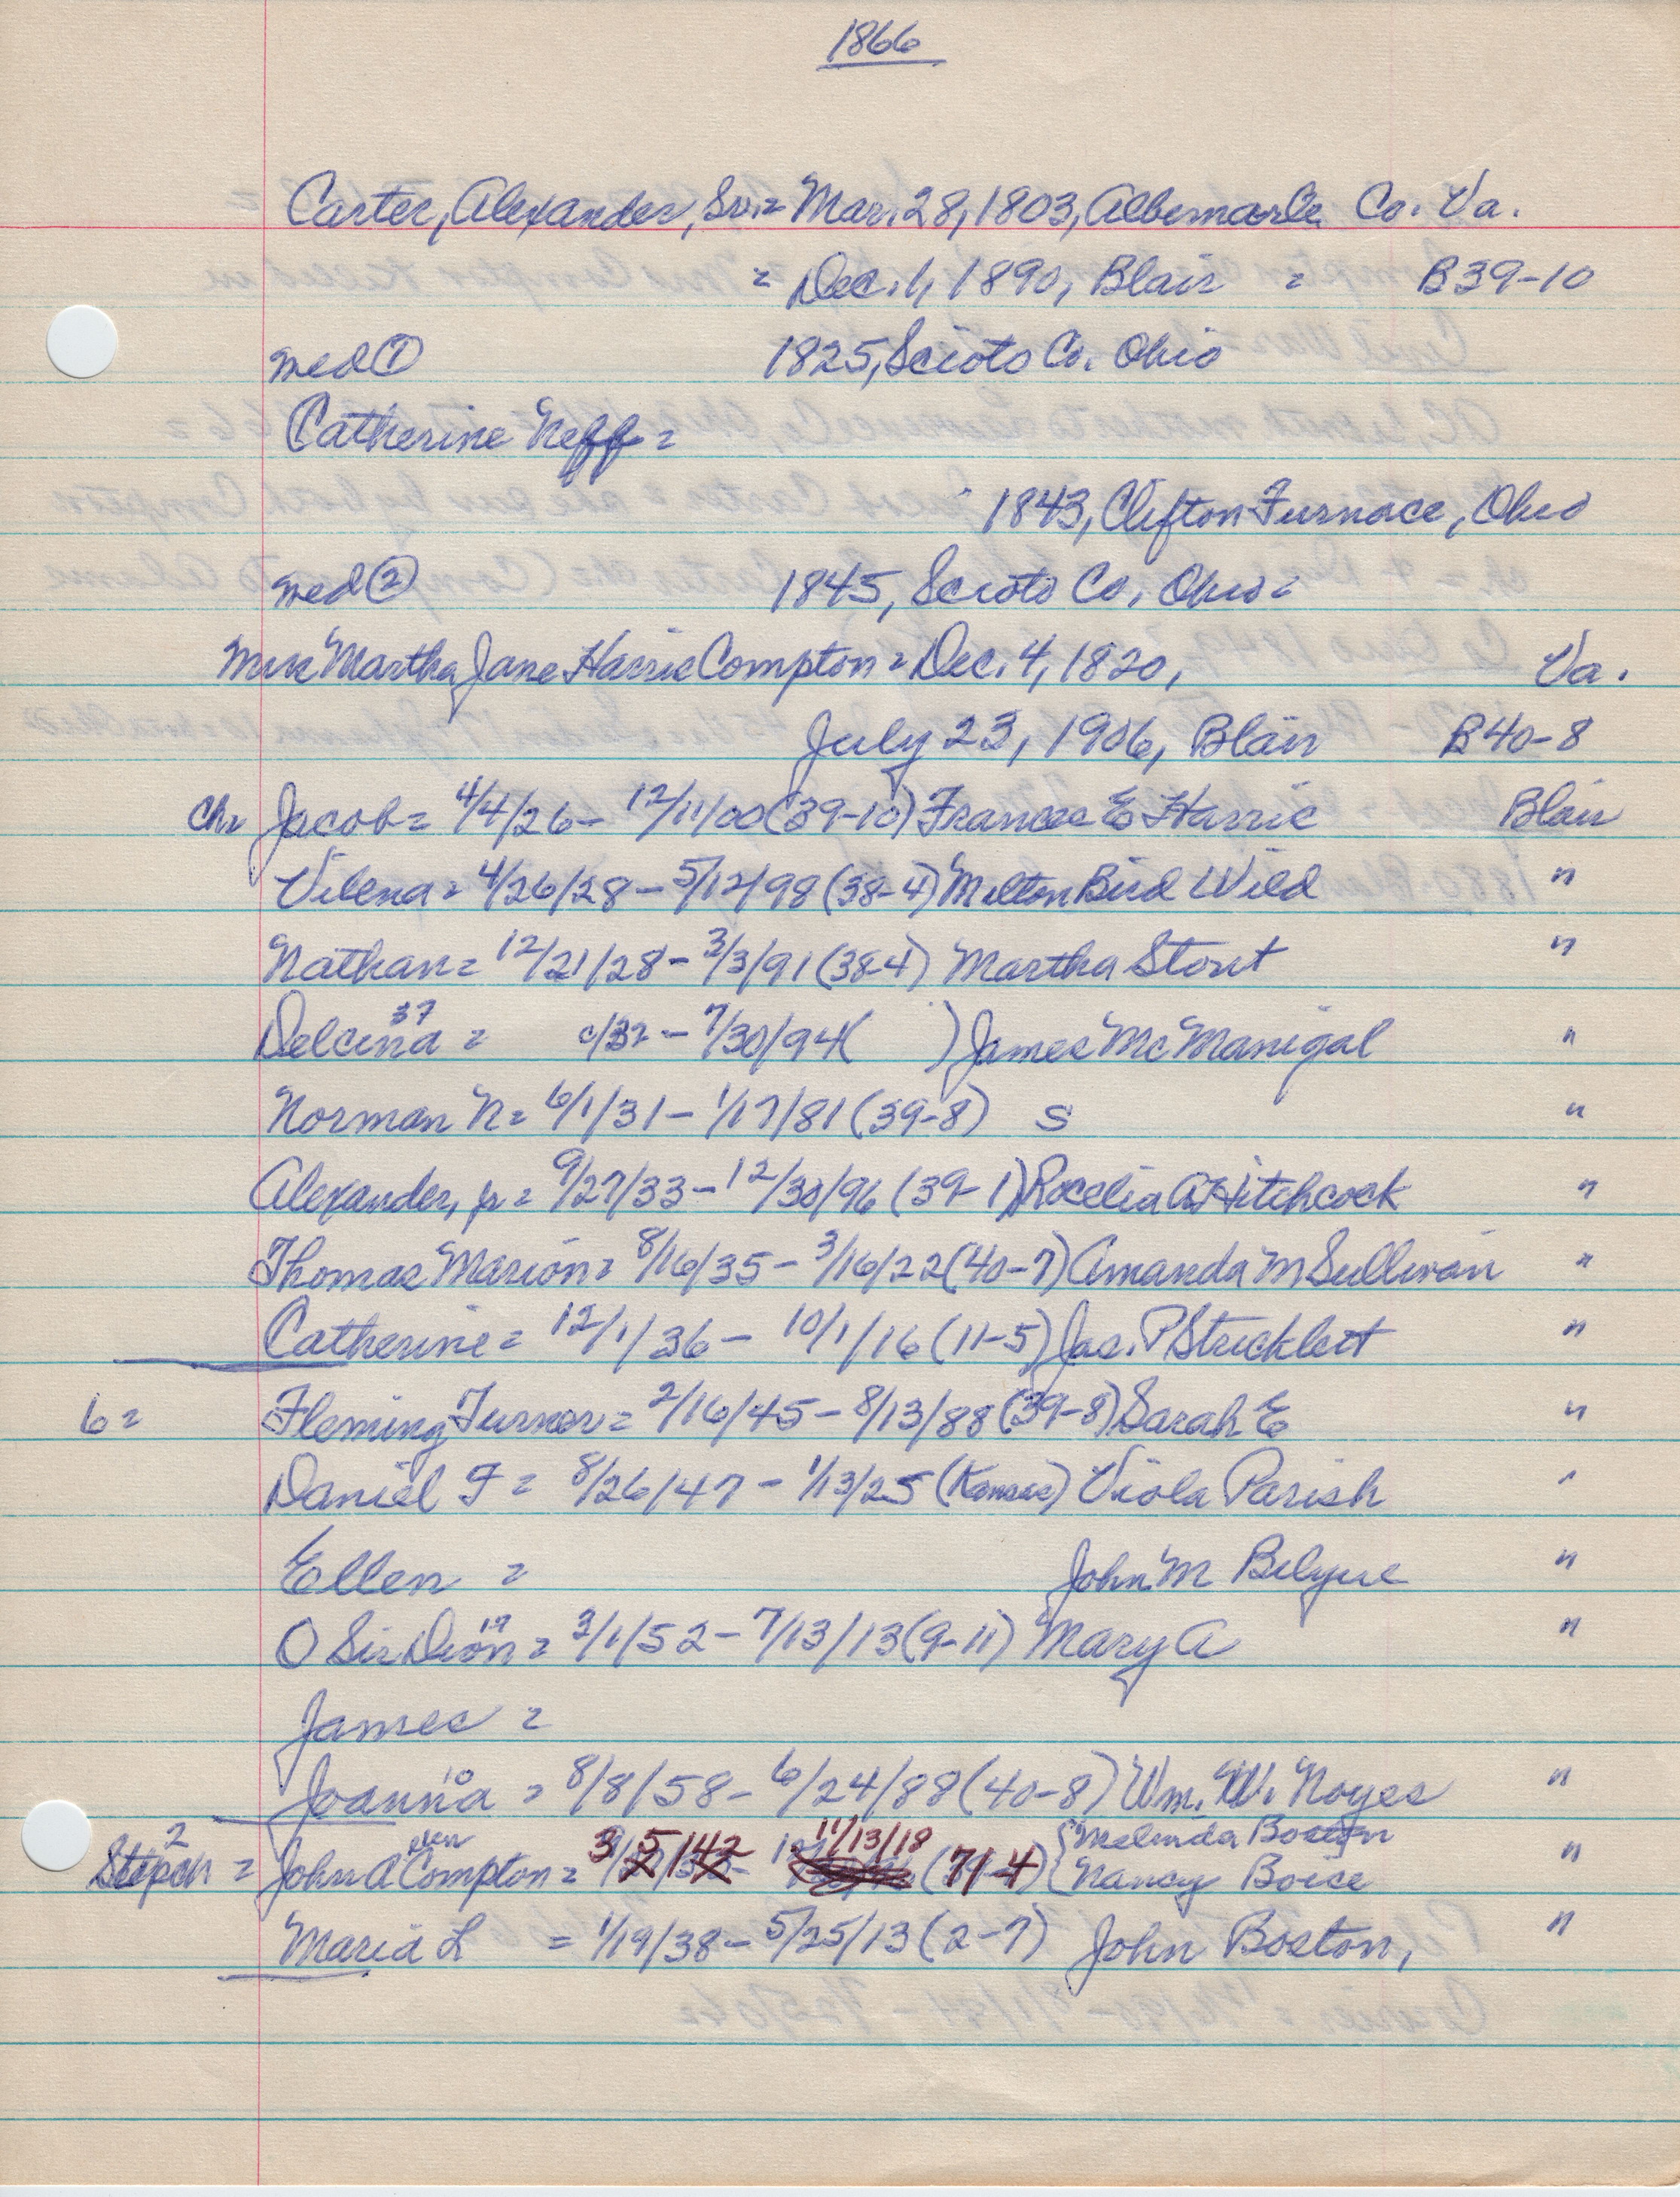 1866
Carter, Alexander, Sr. = Mar. 28, 1803, Albemarle Co. Va.
= Dec. 1, 1890, Blair = B39-10
med ① 1825, Scioto Co. Ohio
Catherine Neff =
1843, Clifton Furnace, Ohio
med ② 1845, Scioto Co. Ohio =
Mrs Martha Jane Harris Compton = Dec. 4, 1820, Va.
July 23, 1906, Blair B40-8
Ch = Jacob = 4/4/26 - 12/11/00 (39-10) Frances E Harris Blair
Vilena = 4/26/28 - 5/12/98 (38-4) Milton Bird Wild "
Nathan = 12/21/28 - 3/3/91 (38-4) Martha Stout "
37
Delcina = c/32 - 7/30/94 ( ) James McManigal "
Norman N = 6/1/31 - 1/17/81 (39-8) S "
Alexander, jr = 9/27/33 - 12/30/96 (39-1) Rocelia A Hitchcock "
Thomas Marion = 8/16/35 - 3/16/22 (40-7) Amanda M Sullivan "
Catherine = 12/1/36 - 10/1/16 (11-5) Jas. P Stricklett "
6 = Fleming Turner = 2/16/45 - 8/13/88 (39-8) Sarah E "
Daniel F = 8/26/47 - 1/13/25 (Kansas) Viola Parish "
Ellen = John M Bilyue "
19
O Sir Deon = 3/1/52 - 7/13/13 (9-11) Mary A "
James =
10
Joanna = 8/8/58 - 6/24/88 (40-8) Wm. W. Noyes "
2 11/13/18 { Melinda Boston
Stepch = John A Compton = 3/5/42 (71-4) { Nancy Boice "
Maria L = 1/19/38 - 5/25/13 (2-7) John Boston, "